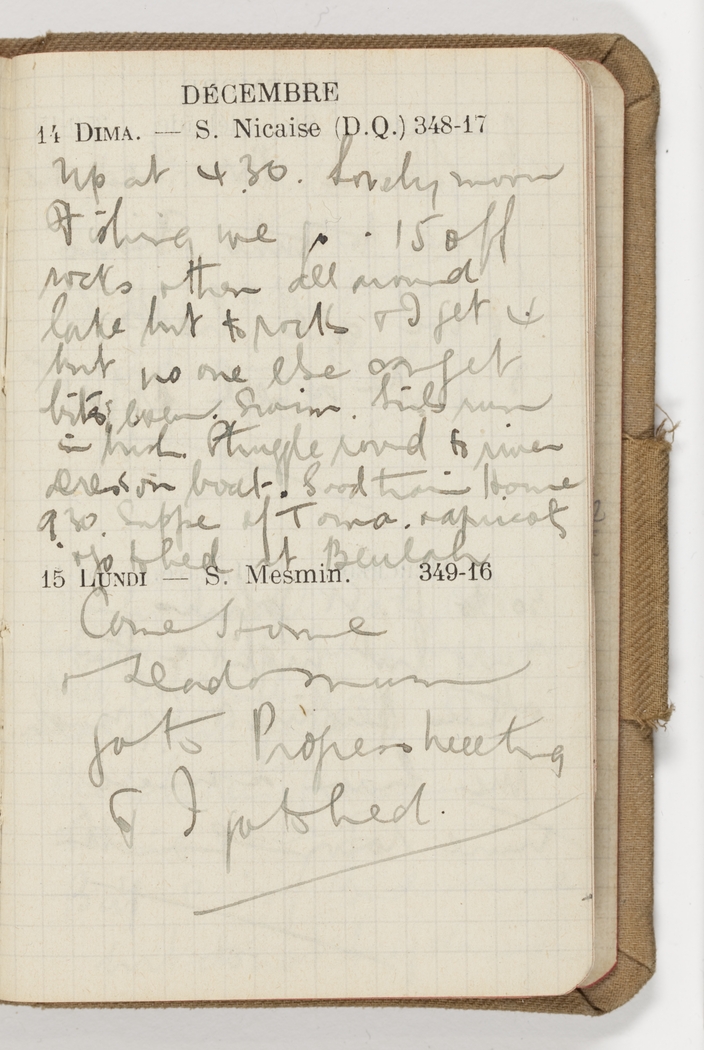 DÉCEMBRE
14 DIMA. — S. Nicaise (D.Q.) 348-17
Up at 4.30. Lovely moon
Fishing we go. 15 off
rocks then all around
lake but to rocks & I get 4
but no one else can get
bites even. Swim. run
in bush. Struggle round to river
on boat. Good train Home
9.30. Suppe of Toma. & apricots
& go to bed at Beulah
15 LUNDI — S. Mesmin. 349-16
Come Home
& mum
go to Propers meeting
& I go to bed.